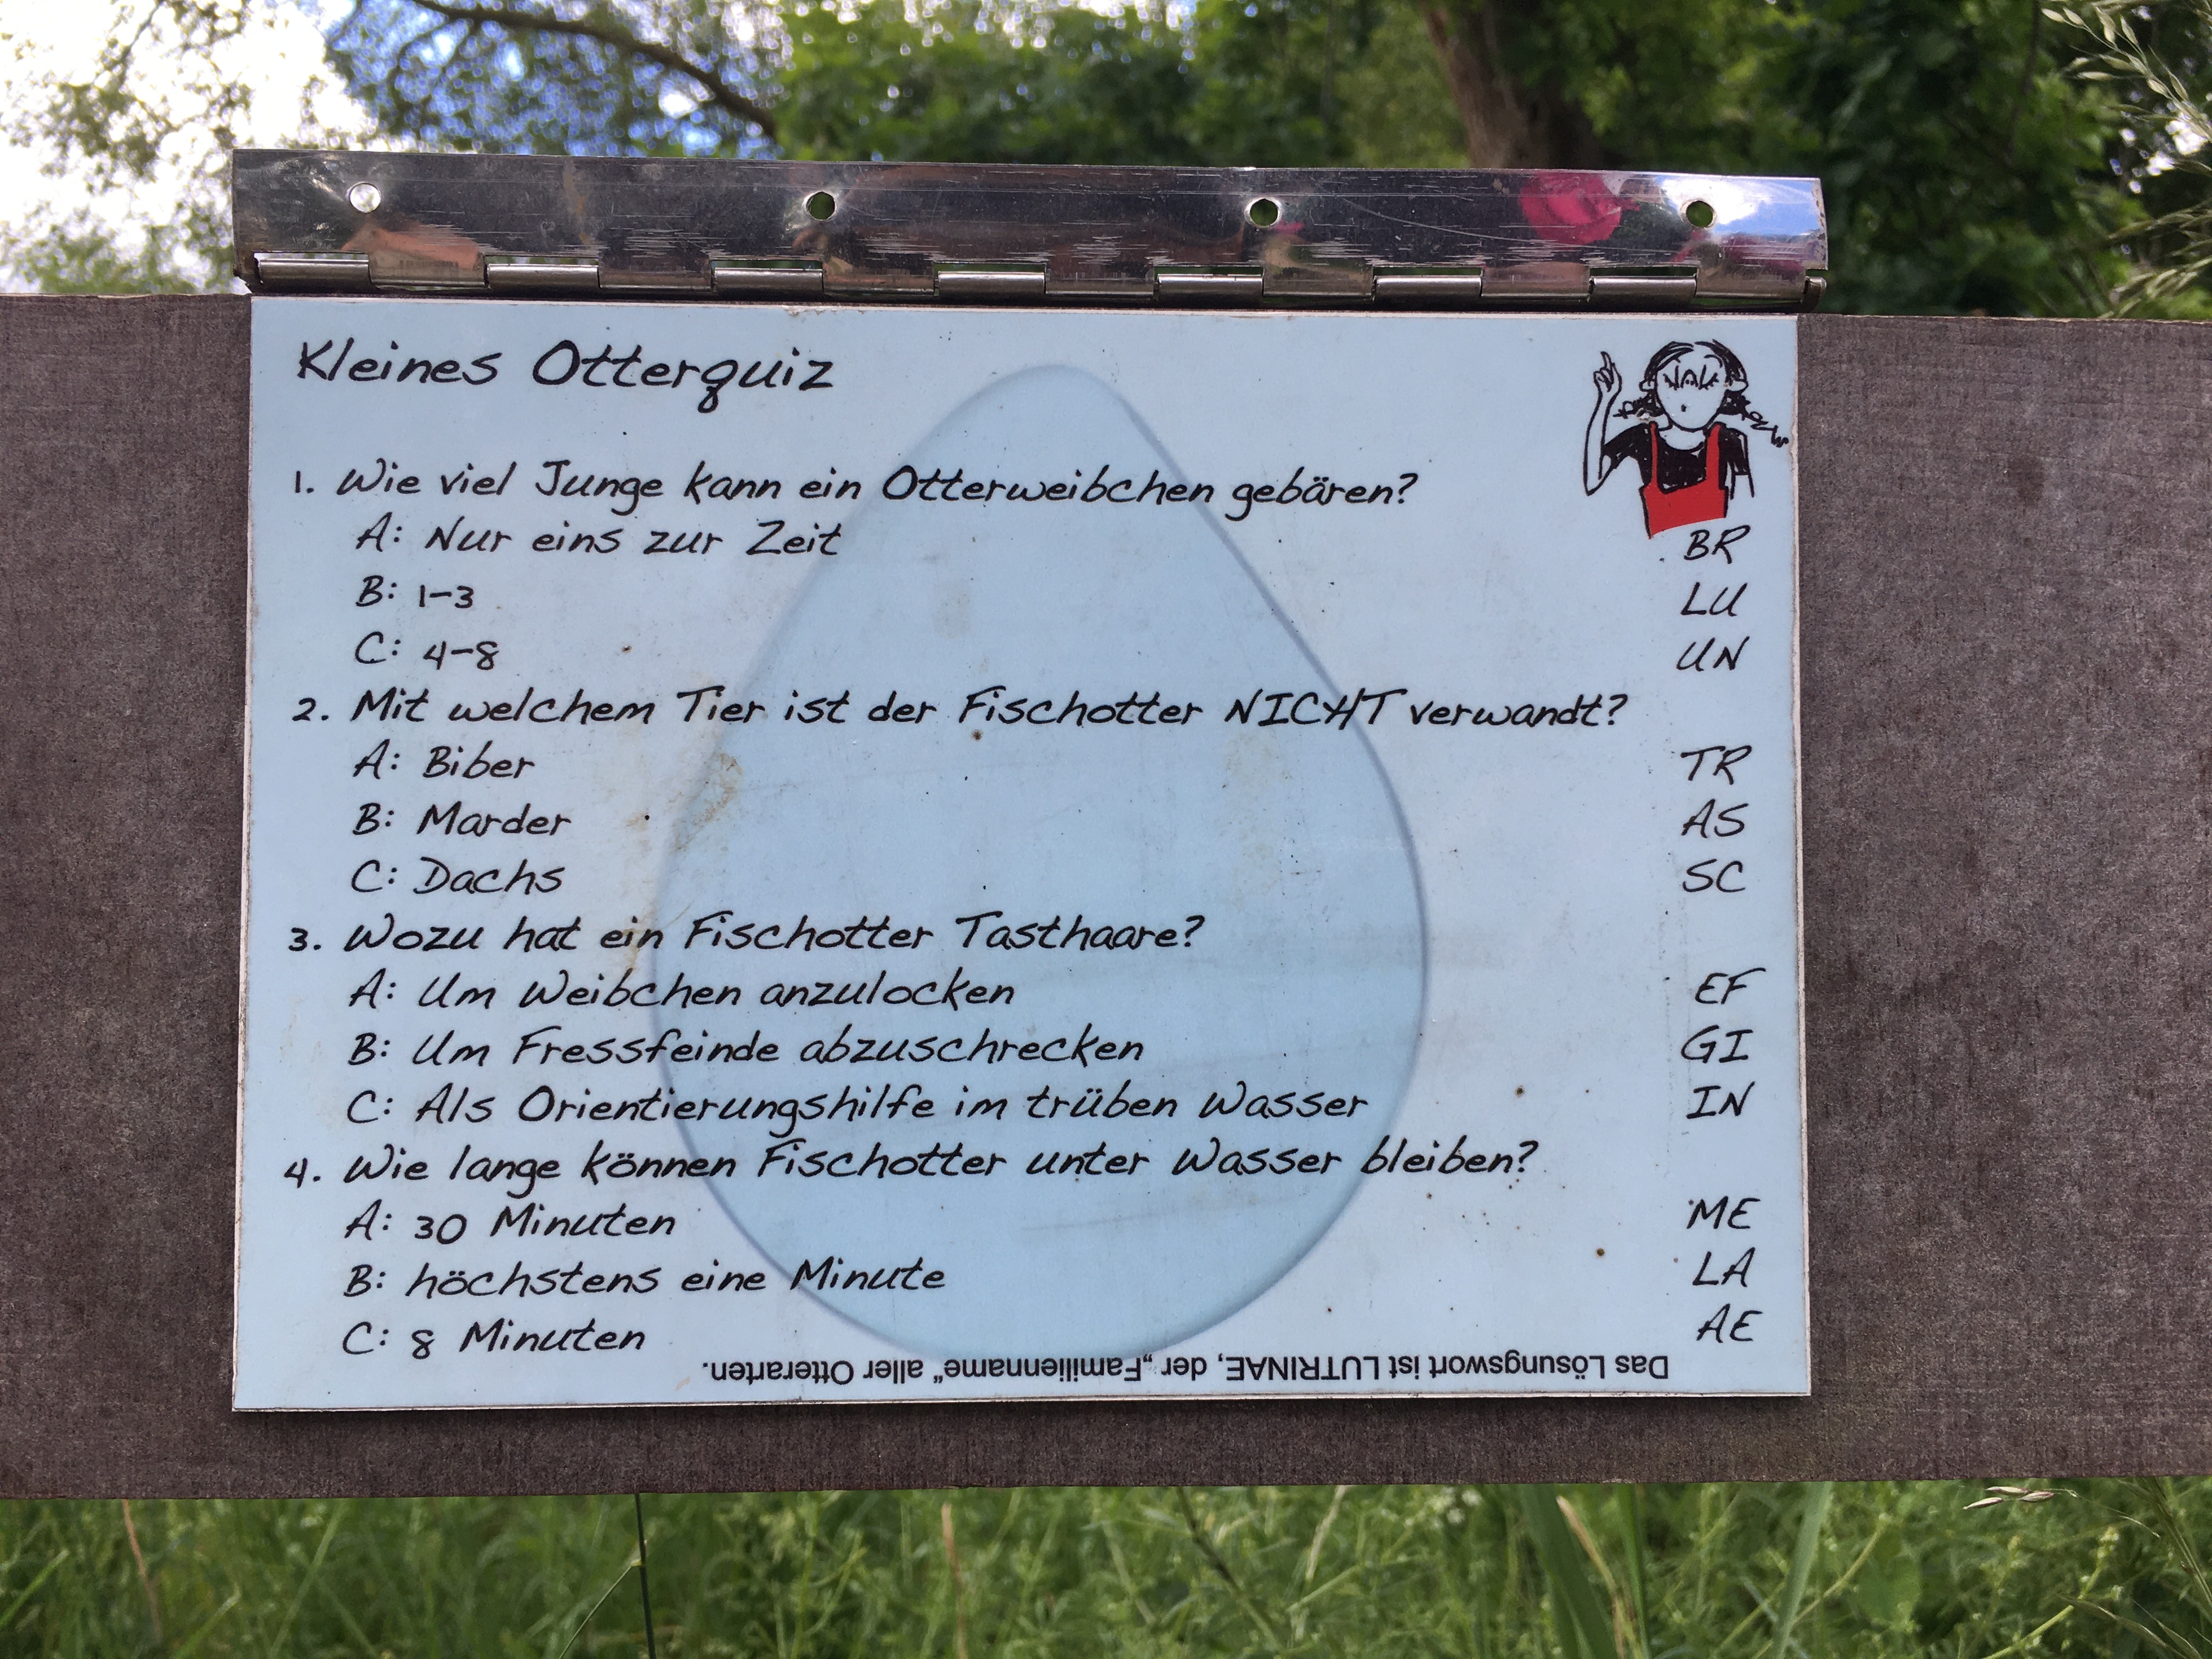 Kleines Otterquiz
1. Wie viel Junge kann ein Otterweibchen gebären?
A: Nur eins zur Zeit BR
B: 1-3 LU
C: 4-8 UN
2. Mit welchem Tier ist der Fischotter NICHT verwandt?
A: Biber TR
B: Marder AS
C: Dachs SC
3. Wozu hat ein Fischotter Tasthaare?
A: Um Weibchen anzulocken EF
B: Um Fressfeinde abzuschrecken GI
C: Als Orientierungshilfe im trüben Wasser IN
4. Wie lange können Fischotter unter Wasser bleiben?
A: 30 Minuten ME
B: höchstens eine Minute LA
C: 8 Minuten AE
Das Lösungswort ist LUTRINAE, der „Familienname“ aller Otterarten.